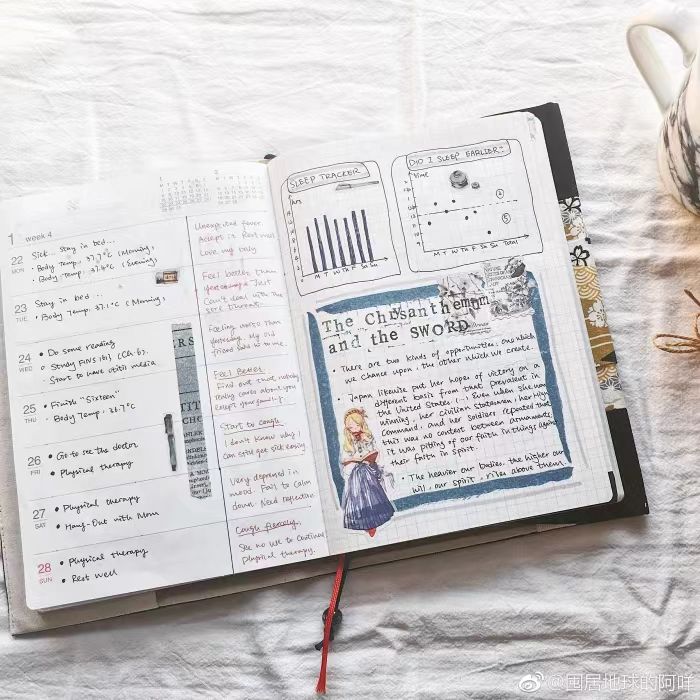 1 week 4
22
MON
Sick... Stay in bed...
• Body Temp. 37.7°C (Morning)
• Body Temp. 37.4°C (Evening)
23
TUE
Stay in bed...
• Body Temp. 37.1°C (Morning)
24
WED
• Do some reading
• Study FINS 161 (Ch.6).
• Start to have media
25
THU
• Finish "Sixteen"
• Body Temp. 36.7°C
26
FRI
• Go to see the doctor
• Physical therapy
27
SAT
• Physical therapy
• Hang-Out with Mom
28
SUN
• Physical therapy
• Rest well
Unexpected fever
Accept is Rest well
Love my body
Feel better than
yesterday Just
Can't deal with the
sore throat.
Feeling worse than
yesterday. My old
friend said to me.
Feel Better.
Find out that nobody
really cares about you
except your family
Start to cough
I don't know why I
can still get sick easily
Very depressed in
mood. Fail to calm
down. Need reflection
Cough fiercely.
See no use to continue
Physical therapy.
SLEEP TRACKER
M T W Th F Sa Su
DID I SLEEP EARLIER?
Time
M T W Th F Sa Su Total
The Chrysanthemum
and the SWORD
• There are two kinds of opportunities, one which
we chance upon, the other which we create.
• Japan likewise put her hopes of victory on a
different basis from that prevalent in
the United States (...). Even when she was
winning, her civilian statesmen, her High
Command, and her soldiers repeated that
this was no contest between armaments,
it was pitting of our faith in things against
their faith in spirit.
• The heavier our bodies, the higher our
will, our spirit, rises above them.
@囤居地球的阿咩